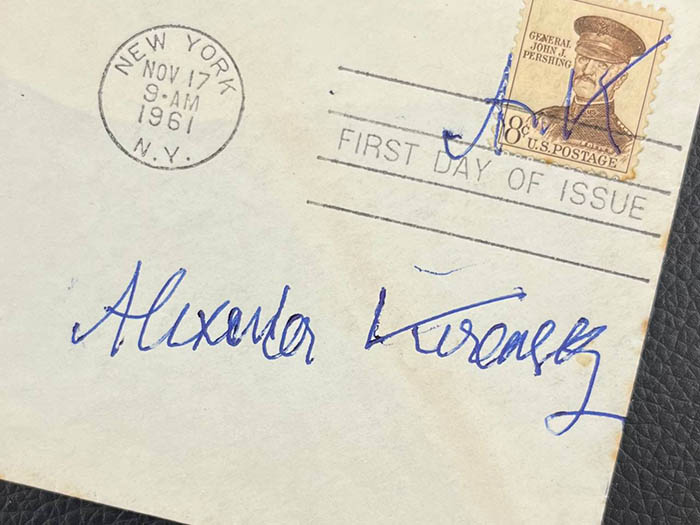 NEW YORK
NOV 17
9-AM
1961
N.Y.
GENERAL
JOHN J.
PERSHING
8¢ U.S. POSTAGE
FIRST DAY OF ISSUE
Alexander Kerensky